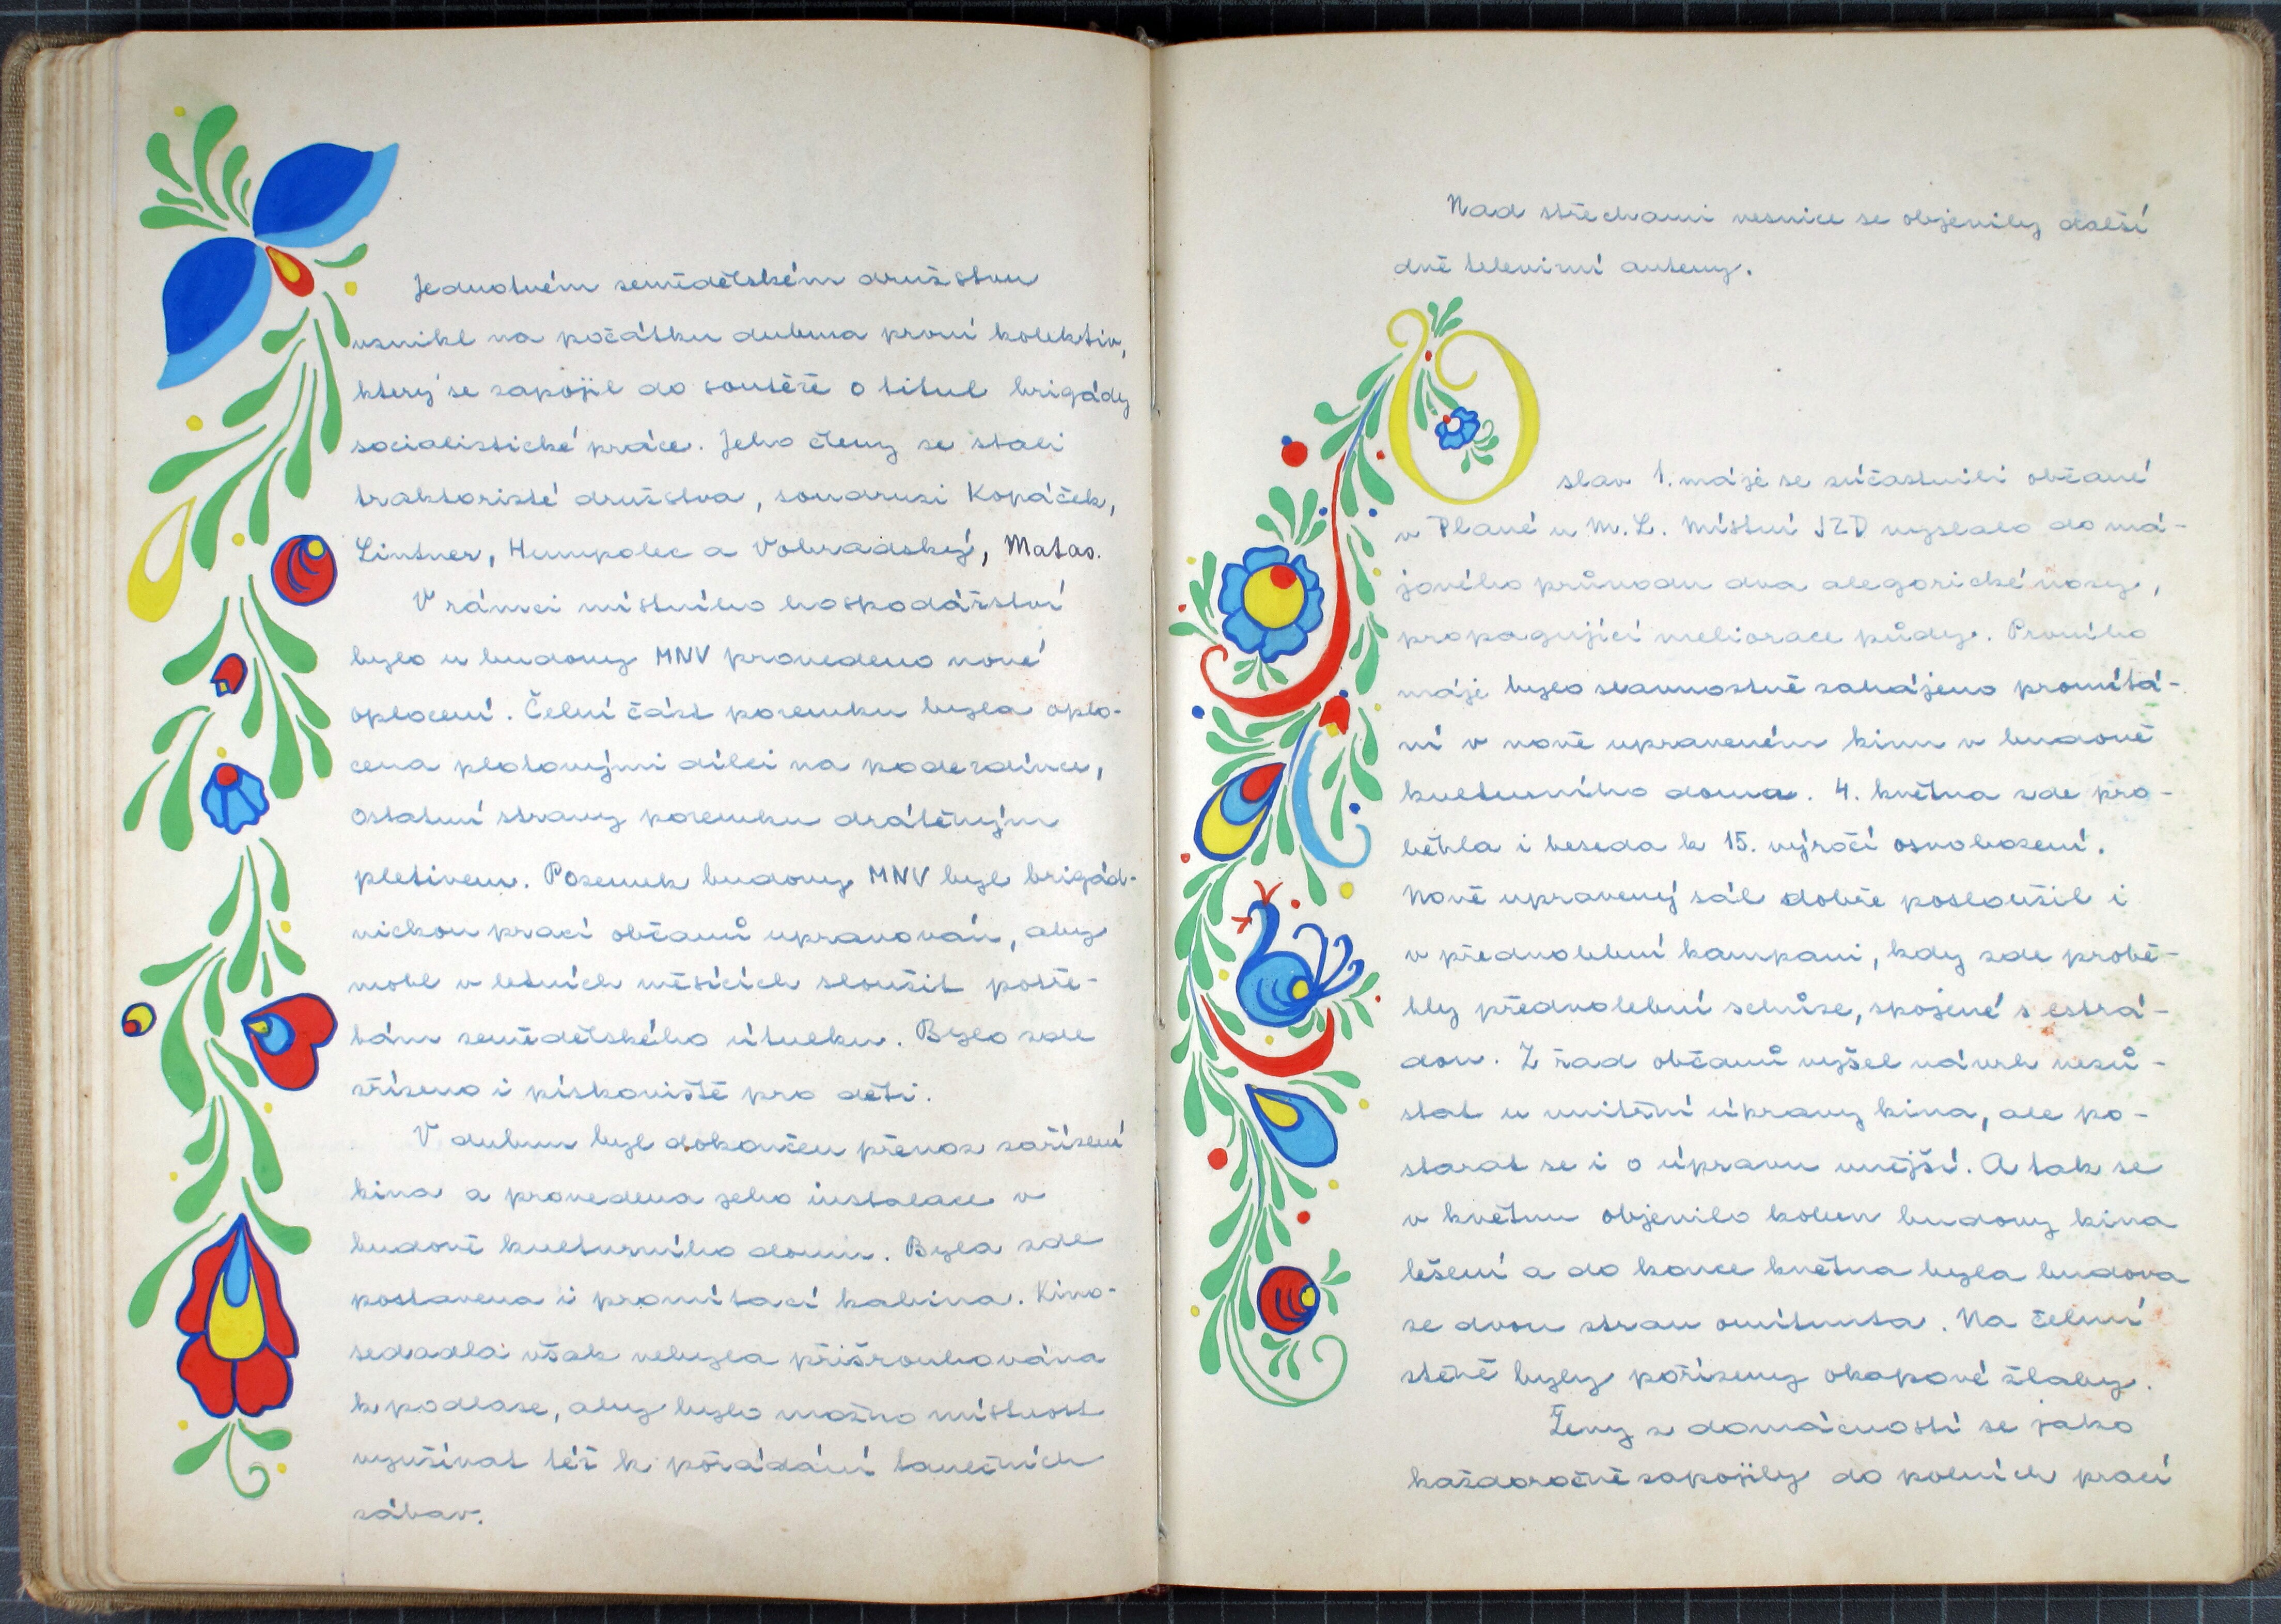 Jednotném zemědělském družstvu
vznikl na počátku dubna první kolektiv,
který se zapojil do soutěže o titul brigády
socialistické práce. Jeho členy se stali
traktoristé družstva, soudruzi Kopáček,
Lintner, Humpolec a Vobradský, Matas.
V rámci místního hospodářství
bylo u budovy MNV provedeno nové
oplocení. Čelní část pozemku byla oplo-
cena plotovými dílci na podezdívce,
ostatní strany pozemku drátěným
pletivem. Pozemek budovy MNV byl brigád-
nickou prací občanů upravován, aby
mohl v letních měsících sloužit potře-
bám zemědělského útulku. Bylo zde
zřízeno i pískoviště pro děti.
V dubnu byl dokončen přenos zařízení
kina a provedena jeho instalace v
budově kulturního domu. Byla zde
postavena i promítací kabina. Kino-
sedadla však nebyla přišroubována
k podlaze, aby bylo možno místnost
využívat též k pořádání tanečních
zábav.
Nad střechami vesnice se objevily další
dvě televizní anteny.
O
slav 1. máje se zúčastnili občané
v Plané u M. L. Místní JZD vyslalo do má-
jového průvodu dva alegorické vozy,
propagující meliorace půdy. Prvního
máje bylo slavnostně zahájeno promítá-
ní v nově upraveném kinu v budově
kulturního domu. 4. května zde pro-
běhla i beseda k 15. výročí osvobození.
Nově upravený sál dobře posloužil i
v předvolební kampani, kdy zde probě-
hly předvolební schůze, spojené s estrá-
dou. Z řad občanů vyšel návrh nezů-
stat u vnitřní úpravy kina, ale po-
starat se i o úpravu vnější. A tak se
v květnu objevilo kolem budovy kina
lešení a do konce května byla budova
ze dvou stran omítnuta. Na čelní
stěně byly pořízeny okapové žlaby.
Ženy z domácností se jako
každoročně zapojily do polních prací